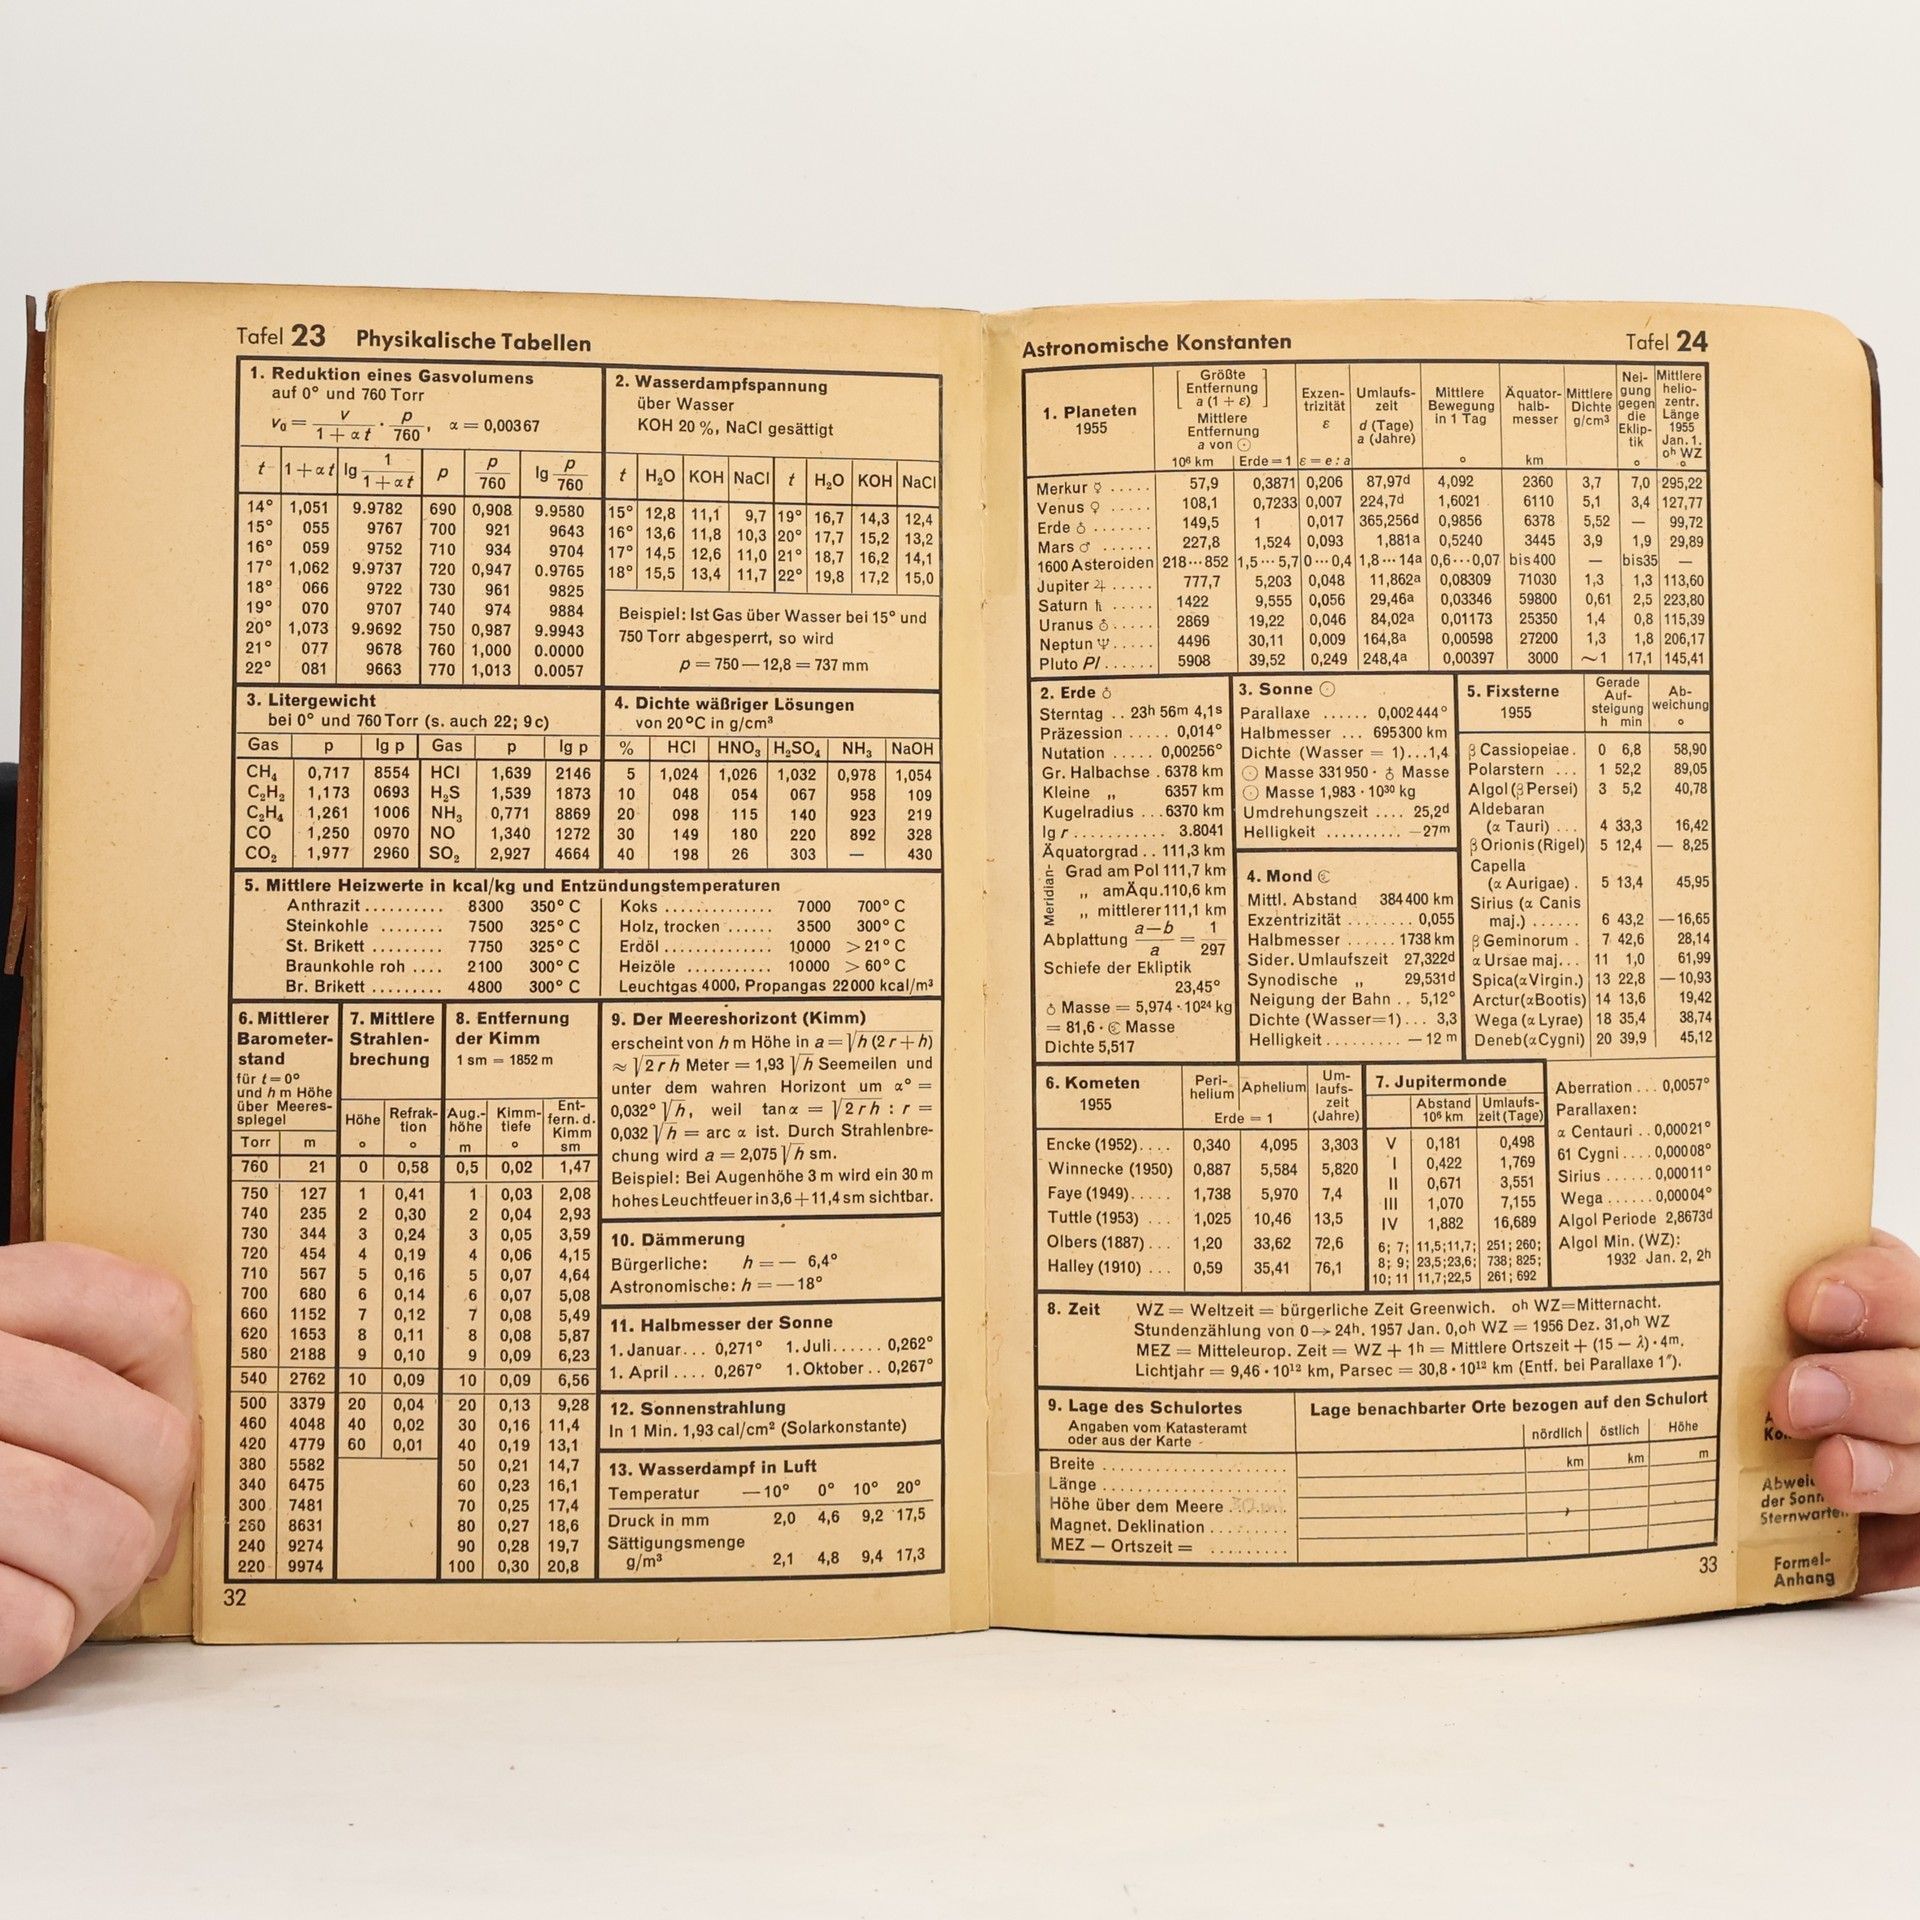 Tafel 23 Physikalische Tabellen
1. Reduktion eines Gasvolumens
auf 0° und 760 Torr
v₀ = v / (1 + αt) · p / 760, α = 0,00367
t 1+αt lg 1/(1+αt) p p/760 lg p/760
14° 1,051 9.9782 690 0,908 9.9580
15° 055 9767 700 921 9643
16° 059 9752 710 934 9704
17° 1,062 9.9737 720 0,947 0.9765
18° 066 9722 730 961 9825
19° 070 9707 740 974 9884
20° 1,073 9.9692 750 0,987 9.9943
21° 077 9678 760 1,000 0.0000
22° 081 9663 770 1,013 0.0057
2. Wasserdampfspannung
über Wasser
KOH 20 %, NaCl gesättigt
t H₂O KOH NaCl t H₂O KOH NaCl
15° 12,8 11,1 9,7 19° 16,7 14,3 12,4
16° 13,6 11,8 10,3 20° 17,7 15,2 13,2
17° 14,5 12,6 11,0 21° 18,7 16,2 14,1
18° 15,5 13,4 11,7 22° 19,8 17,2 15,0
Beispiel: Ist Gas über Wasser bei 15° und
750 Torr abgesperrt, so wird
p = 750 — 12,8 = 737 mm
3. Litergewicht
bei 0° und 760 Torr (s. auch 22; 9c)
Gas p lg p Gas p lg p
CH₄ 0,717 8554 HCl 1,639 2146
C₂H₂ 1,173 0693 H₂S 1,539 1873
C₂H₄ 1,261 1006 NH₃ 0,771 8869
CO 1,250 0970 NO 1,340 1272
CO₂ 1,977 2960 SO₂ 2,927 4664
4. Dichte wäßriger Lösungen
von 20°C in g/cm³
% HCl HNO₃ H₂SO₄ NH₃ NaOH
5 1,024 1,026 1,032 0,978 1,054
10 048 054 067 958 109
20 098 115 140 923 219
30 149 180 220 892 328
40 198 26 303 — 430
5. Mittlere Heizwerte in kcal/kg und Entzündungstemperaturen
Anthrazit .......... 8300 350° C
Steinkohle ........ 7500 325° C
St. Brikett ......... 7750 325° C
Braunkohle roh .... 2100 300° C
Br. Brikett ......... 4800 300° C
Koks .............. 7000 700° C
Holz, trocken ...... 3500 300° C
Erdöl .............. 10000 > 21° C
Heizöle ........... 10000 > 60° C
Leuchtgas 4000, Propangas 22000 kcal/m³
6. Mittlerer
Barometer-
stand
für t = 0°
und h m Höhe
über Meeres-
spiegel
Torr m
760 21
750 127
740 235
730 344
720 454
710 567
700 680
660 1152
620 1653
580 2188
540 2762
500 3379
460 4048
420 4779
380 5582
340 6475
300 7481
260 8631
240 9274
220 9974
7. Mittlere
Strahlen-
brechung
Höhe Refrak-
tion
° °
0 0,58
1 0,41
2 0,30
3 0,24
4 0,19
5 0,16
6 0,14
7 0,12
8 0,11
9 0,10
10 0,09
20 0,04
40 0,02
60 0,01
8. Entfernung
der Kimm
1 sm = 1852 m
Aug.-
höhe
m
Kimm-
tiefe
°
Ent-
fern. d.
Kimm
sm
0,5 0,02 1,47
1 0,03 2,08
2 0,04 2,93
3 0,05 3,59
4 0,06 4,15
5 0,07 4,64
6 0,07 5,08
7 0,08 5,49
8 0,08 5,87
9 0,09 6,23
10 0,09 6,56
20 0,13 9,28
30 0,16 11,4
40 0,19 13,1
50 0,21 14,7
60 0,23 16,1
70 0,25 17,4
80 0,27 18,6
90 0,28 19,7
100 0,30 20,8
9. Der Meereshorizont (Kimm)
erscheint von h m Höhe in a = √h (2 r + h)
≈ √2 r h Meter = 1,93 √h Seemeilen und
unter dem wahren Horizont um α° =
0,032° √h, weil tanα = √2 r h : r =
0,032 √h = arc α ist. Durch Strahlenbre-
chung wird a = 2,075 √h sm.
Beispiel: Bei Augenhöhe 3 m wird ein 30 m
hohes Leuchtfeuer in 3,6 + 11,4 sm sichtbar.
10. Dämmerung
Bürgerliche: h = — 6,4°
Astronomische: h = — 18°
11. Halbmesser der Sonne
1. Januar... 0,271° 1. Juli...... 0,262°
1. April .... 0,267° 1. Oktober .. 0,267°
12. Sonnenstrahlung
In 1 Min. 1,93 cal/cm² (Solarkonstante)
13. Wasserdampf in Luft
Temperatur —10° 0° 10° 20°
Druck in mm 2,0 4,6 9,2 17,5
Sättigungsmenge
g/m³ 2,1 4,8 9,4 17,3
32
Astronomische Konstanten Tafel 24
1. Planeten
1955
[Größte
Entfernung
a (1 + ε)]
Mittlere
Entfernung
a von ☉
10⁶ km Erde = 1
Exzen-
trizität
ε
ε = e : a
Umlaufs-
zeit
d (Tage)
a (Jahre)
Mittlere
Bewegung
in 1 Tag
°
Äquator-
halb-
messer
km
Mittlere
Dichte
g/cm³
Nei-
gung
gegen
die
Eklip-
tik
°
Mittlere
helio-
zentr.
Länge
1955
Jan. 1.
0h WZ
°
Merkur ☿ ..... 57,9 0,3871 0,206 87,97d 4,092 2360 3,7 7,0 295,22
Venus ♀ ..... 108,1 0,7233 0,007 224,7d 1,6021 6110 5,1 3,4 127,77
Erde ♁ ....... 149,5 1 0,017 365,256d 0,9856 6378 5,52 — 99,72
Mars ♂ ...... 227,8 1,524 0,093 1,881a 0,5240 3445 3,9 1,9 29,89
1600 Asteroiden 218···852 1,5···5,7 0···0,4 1,8···14a 0,6···0,07 bis 400 — bis 35 —
Jupiter ♃ ..... 777,7 5,203 0,048 11,862a 0,08309 71030 1,3 1,3 113,60
Saturn ♄ ..... 1422 9,555 0,056 29,46a 0,03346 59800 0,61 2,5 223,80
Uranus ♅ ..... 2869 19,22 0,046 84,02a 0,01173 25350 1,4 0,8 115,39
Neptun ♆ ..... 4496 30,11 0,009 164,8a 0,00598 27200 1,3 1,8 206,17
Pluto Pl ...... 5908 39,52 0,249 248,4a 0,00397 3000 ~1 17,1 145,41
2. Erde ♁
Sterntag .. 23h 56m 4,1s
Präzession ..... 0,014°
Nutation ..... 0,00256°
Gr. Halbachse . 6378 km
Kleine „ 6357 km
Kugelradius ... 6370 km
lg r ........... 3.8041
Äquatorgrad .. 111,3 km
Meridian-
Grad am Pol 111,7 km
„ am Äqu. 110,6 km
„ mittlerer 111,1 km
Abplattung (a—b)/a = 1/297
Schiefe der Ekliptik
23,45°
♁ Masse = 5,974 · 10²⁴ kg
= 81,6 · ☾ Masse
Dichte 5,517
3. Sonne ☉
Parallaxe ...... 0,002444°
Halbmesser ... 695300 km
Dichte (Wasser = 1)...1,4
☉ Masse 331950 · ♁ Masse
☉ Masse 1,983 · 10³⁰ kg
Umdrehungszeit .... 25,2d
Helligkeit ......... —27m
4. Mond ☾
Mittl. Abstand 384400 km
Exzentrizität ........ 0,055
Halbmesser ...... 1738 km
Sider. Umlaufszeit 27,322d
Synodische „ 29,531d
Neigung der Bahn .. 5,12°
Dichte (Wasser=1)... 3,3
Helligkeit ......... — 12 m
5. Fixsterne
1955
Gerade
Auf-
steigung
h min
Ab-
weichung
°
β Cassiopeiae . 0 6,8 58,90
Polarstern ... 1 52,2 89,05
Algol (β Persei) 3 5,2 40,78
Aldebaran
(α Tauri) ... 4 33,3 16,42
β Orionis (Rigel) 5 12,4 — 8,25
Capella
(α Aurigae) . 5 13,4 45,95
Sirius (α Canis
maj.) ...... 6 43,2 —16,65
β Geminorum . 7 42,6 28,14
α Ursae maj... 11 1,0 61,99
Spica (α Virgin.) 13 22,8 —10,93
Arctur (α Bootis) 14 13,6 19,42
Wega (α Lyrae) 18 35,4 38,74
Deneb (α Cygni) 20 39,9 45,12
6. Kometen
1955
Peri-
helium
Aphelium
Erde = 1
Um-
laufs-
zeit
(Jahre)
Encke (1952).... 0,340 4,095 3,303
Winnecke (1950) 0,887 5,584 5,820
Faye (1949)..... 1,738 5,970 7,4
Tuttle (1953) ... 1,025 10,46 13,5
Olbers (1887)... 1,20 33,62 72,6
Halley (1910) ... 0,59 35,41 76,1
7. Jupitermonde
Abstand
10⁶ km
Umlaufs-
zeit (Tage)
V 0,181 0,498
I 0,422 1,769
II 0,671 3,551
III 1,070 7,155
IV 1,882 16,689
6; 7; 11,5;11,7; 251; 260;
8; 9; 23,5;23,6; 738; 825;
10; 11 11,7;22,5 261; 692
Aberration ... 0,0057°
Parallaxen:
α Centauri .. 0,00021°
61 Cygni .... 0,00008°
Sirius ...... 0,00011°
Wega ...... 0,00004°
Algol Periode 2,8673d
Algol Min. (WZ):
1932 Jan. 2, 2h
8. Zeit WZ = Weltzeit = bürgerliche Zeit Greenwich. 0h WZ = Mitternacht.
Stundenzählung von 0 → 24h. 1957 Jan. 0,0h WZ = 1956 Dez. 31,0h WZ
MEZ = Mitteleurop. Zeit = WZ + 1h = Mittlere Ortszeit + (15 — λ) · 4m.
Lichtjahr = 9,46 · 10¹² km, Parsec = 30,8 · 10¹² km (Entf. bei Parallaxe 1″).
9. Lage des Schulortes
Angaben vom Katasteramt
oder aus der Karte
Breite ......................
Länge ......................
Höhe über dem Meere
Magnet. Deklination .........
MEZ — Ortszeit = .........
Lage benachbarter Orte bezogen auf den Schulort
nördlich östlich Höhe
km km m
33
Abwei
der Sonn
Sternwarten
Formel-
Anhang